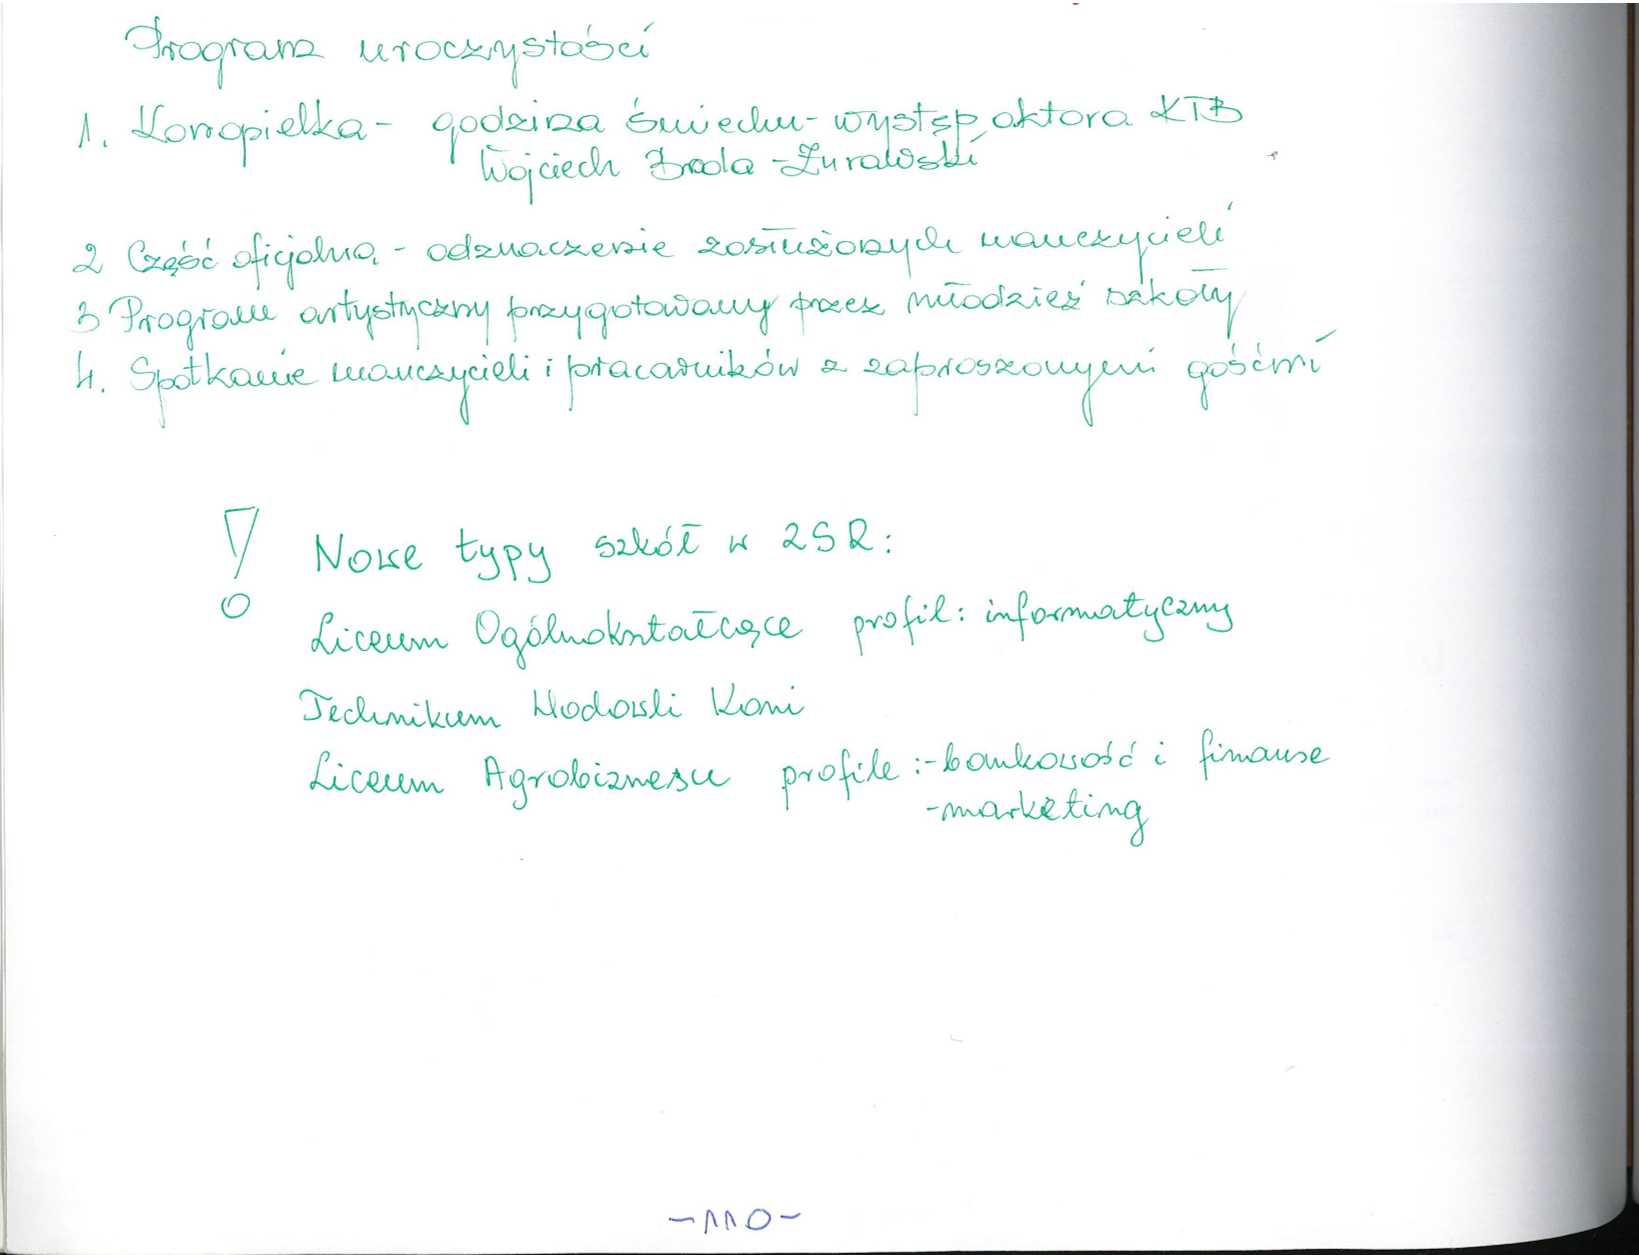 Program uroczystości
1. Konopielka - godzina śmiechu - występ aktora KTB
Wojciech Broda - Żurawski
2 Część oficjalna - odznaczenie zasłużonych nauczycieli
3 Program artystyczny przygotowany przez młodzież szkoły
4. Spotkanie nauczycieli i pracowników z zaproszonymi gośćmi
! Nowe typy szkół w ZSR:
Liceum Ogólnokształcące profil: informatyczny
Technikum Hodowli Koni
Liceum Agrobiznesu profile: - bankowość i finanse
- marketing
- 110 -